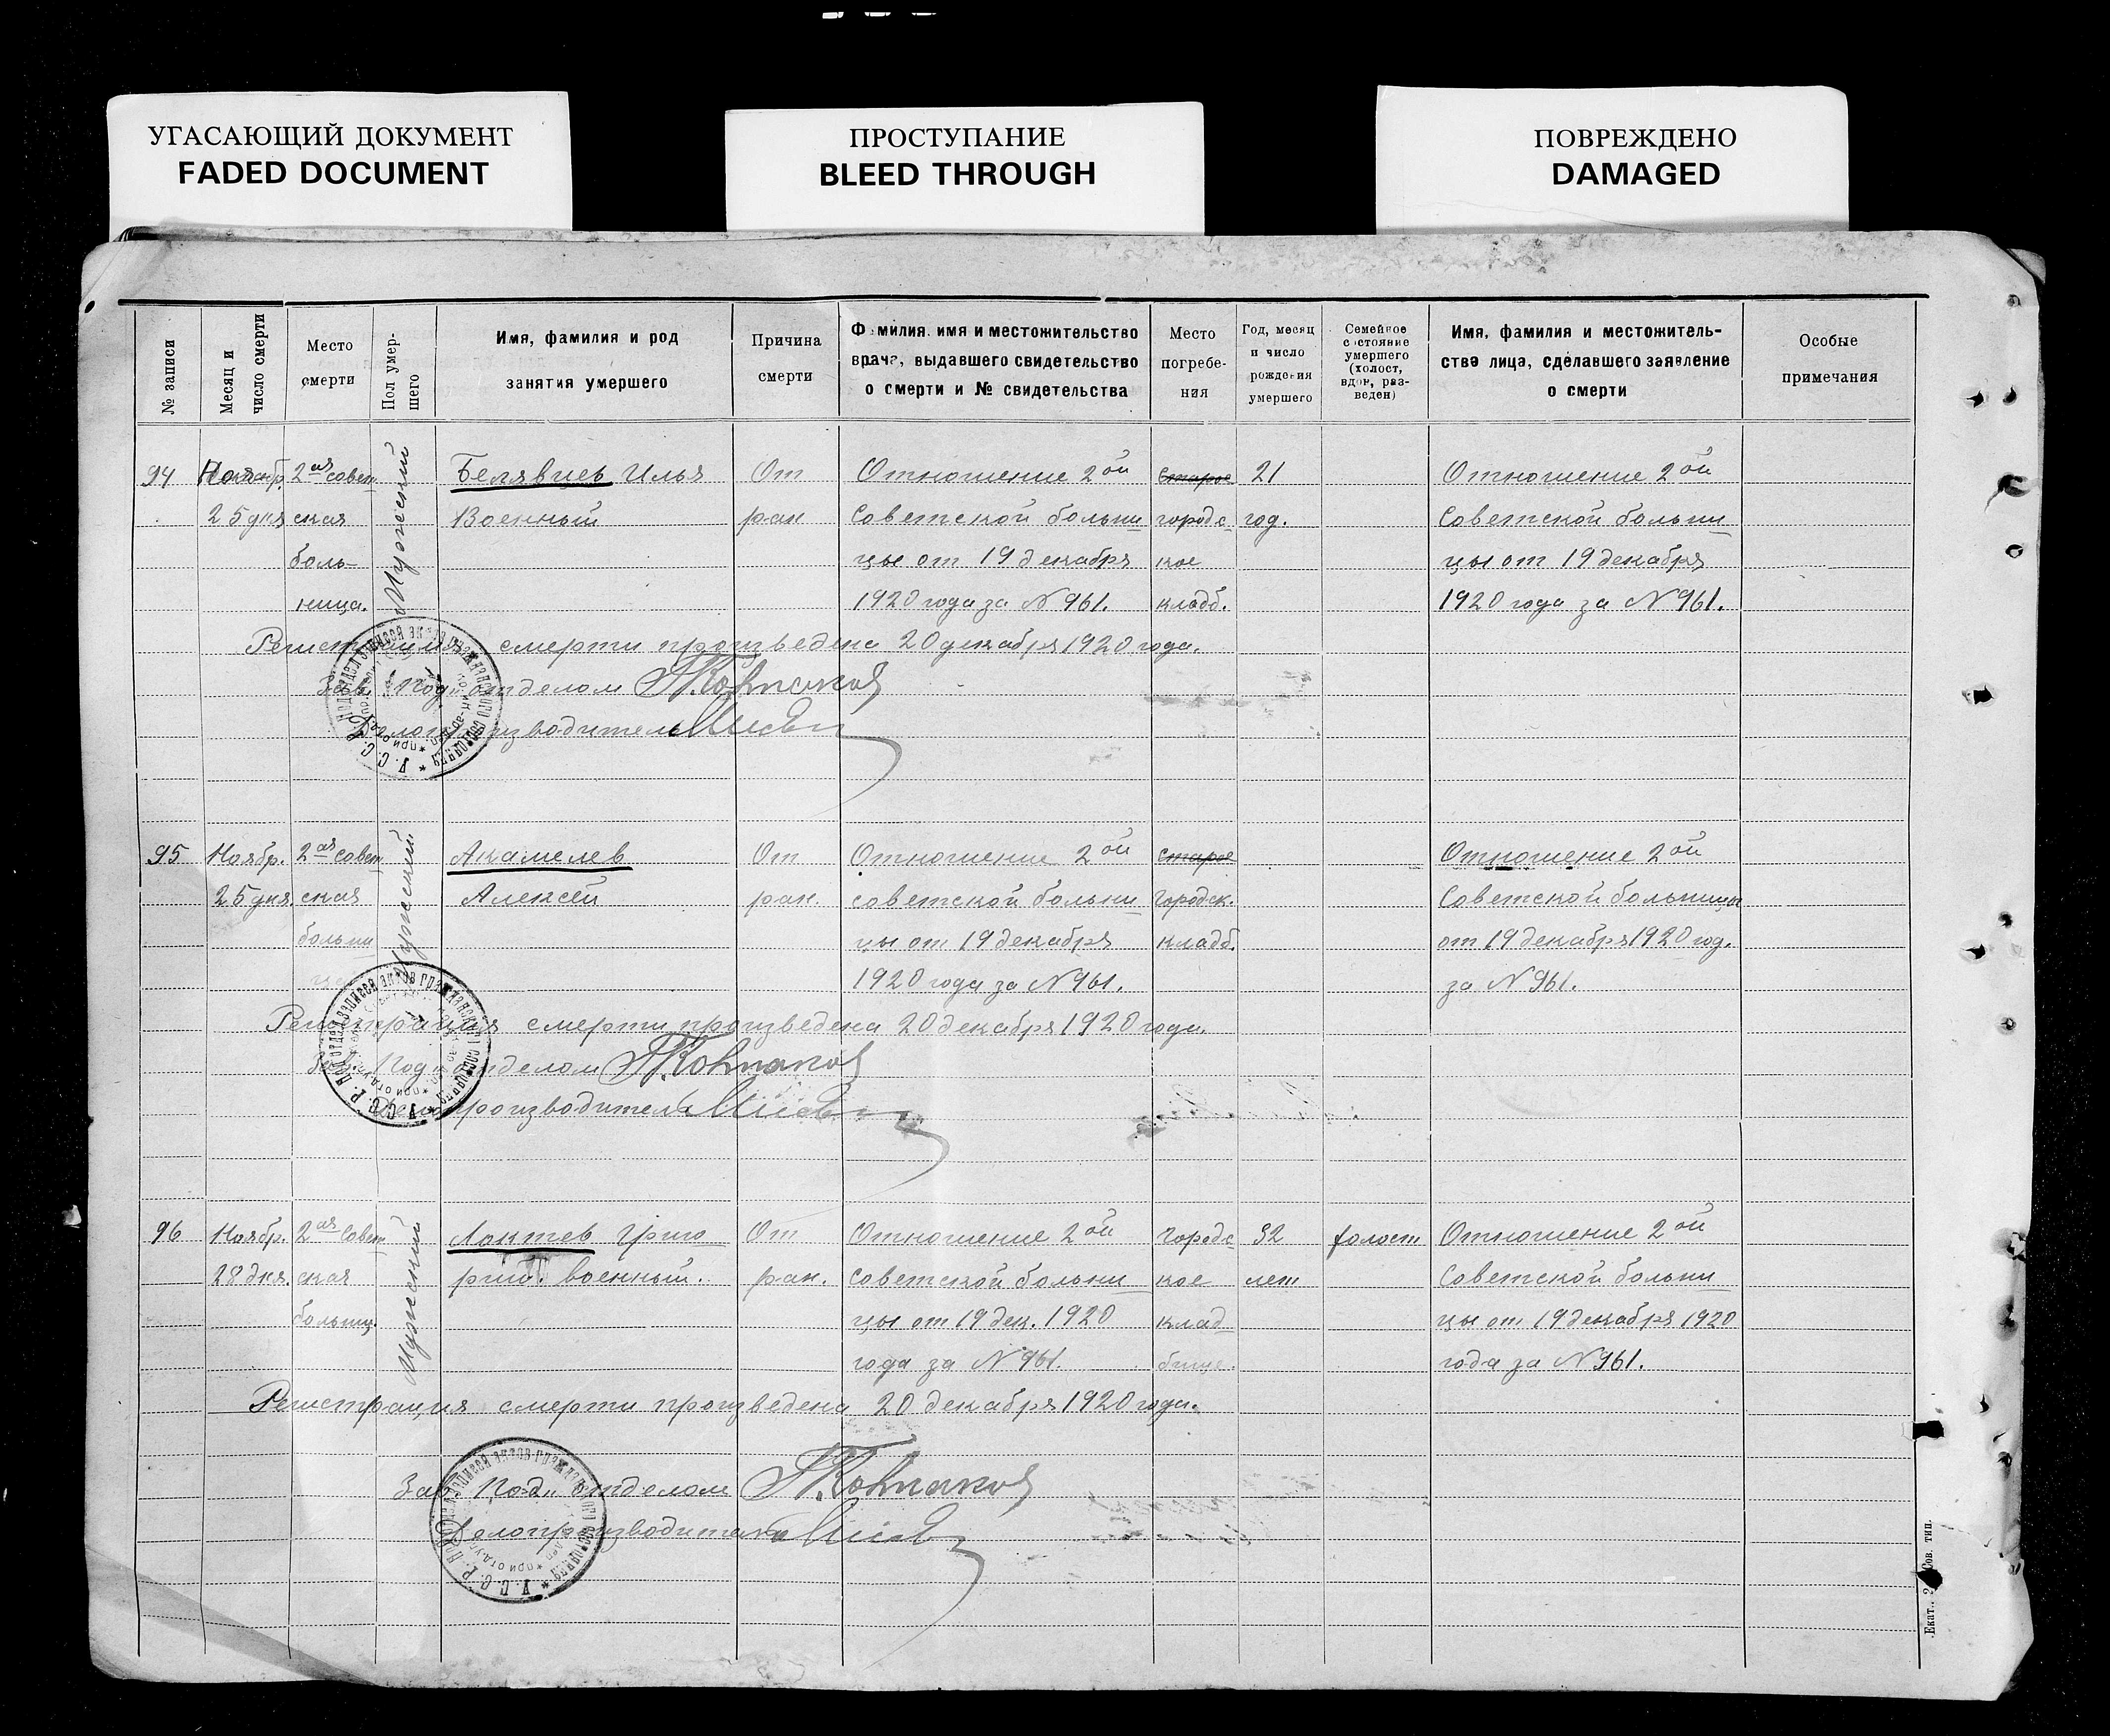 УГАСАЮЩИЙ ДОКУМЕНТ
FADED DOCUMENT
ПРОСТУПАНИЕ
BLEED THROUGH
ПОВРЕЖДЕНО
DAMAGED
№ записи
Месяц и
число смерти
Место
смерти
Пол умер-
шего
Имя, фамилия и род
занятия умершего
Причина
смерти
Фамилия, имя и местожительство
врача, выдавшего свидетельство
о смерти и № свидетельства
Место
погребе-
ния
Год, месяц
и число
рождения
умершего
Семейное
состояние
умершего
(холост,
вдов, раз-
веден)
Имя, фамилия и местожитель-
ства лица, сделавшего заявление
о смерти
Особые
примечания
94
Ноябр.
25 дня
2ая совет
ская
боль-
ница.
Мужский
Белявцев Илья
Военный
От
ран
Отношение 2ой
Советской больни
цы от 19 декабря
1920 года за № 961.
старое
городс
кое
кладб.
21
год.
Отношение 2ой
Советской больни
цы от 19 декабря
1920 года за № 961.
Регистрация смерти произведена 20 декабря 1920 года.
Зав. Под. отделом
Делопроизводитель
95
Ноябр.
25 дня.
2ая совет
ская
больни
Мужский
Акамелев
Алексей
От
ран.
Отношение 2ой
советской больни
цы от 19 декабря
1920 года за № 961.
старое
Городск.
кладб.
Отношение 2ой
Советской больницы
от 19 декабря 1920 год.
за № 961.
Регистрация смерти произведена 20 декабря 1920 года.
Зав. Под. отделом
Делопроизводитель
96
Ноябр.
28 дня.
2ая Совет
ская
больниц.
Мужский
Локтев Григо
рий. военный.
От
ран.
Отношение 2ой
Советской больни
цы от 19 дек. 1920
года за № 961.
Городс
кое
клад
бище.
32
лет
холост
Отношение 2ой
Советской больни
цы от 19 декабря 1920
года за № 961.
Регистрация смерти произведена 20 декабря 1920 года.
Зав. Под. отделом
Делопроизводитель
У.С.С.Р.
Екат., 2 Сов. тип.